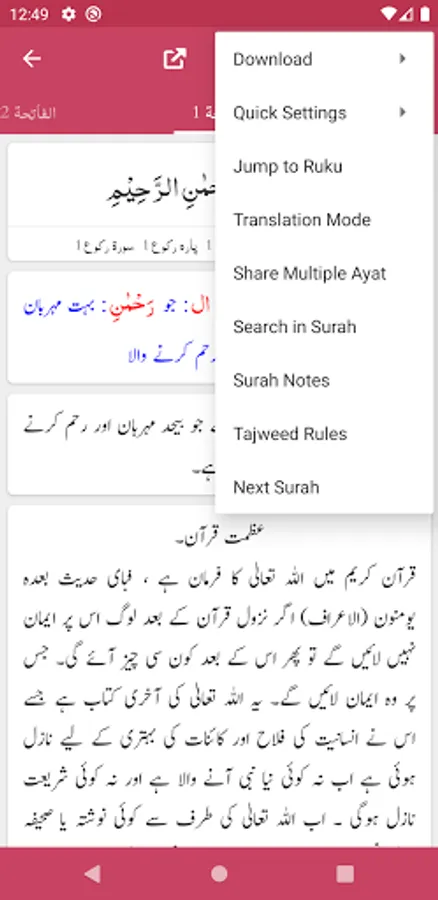 12:49
الفاتحة 2
1
Download
Quick Settings
Jump to Ruku
Translation Mode
Share Multiple Ayat
Search in Surah
Surah Notes
Tajweed Rules
Next Surah
الرَّحِيْمِ
1 پارہ رکوع 1 سورۃ رکوع 1
ال: جو رَحْمٰنِ: بہت مہربان
رحم کرنے والا
جو بیحد مہربان اور رحم کرنے
ہے۔
عظمت قرآن۔
قرآن کریم میں اللہ تعالٰی کا فرمان ہے ، فبای حدیث بعدہ
یومنون (الاعراف) اگر نزول قرآن کے بعد لوگ اس پر ایمان
نہیں لائیں گے تو پھر اس کے بعد کون سی چیز آئے گی۔ جس
پر وہ ایمان لائیں گے۔ یہ اللہ تعالٰی کی آخری کتاب ہے جسے
اس نے انسانیت کی فلاح اور کائنات کی بہتری کے لیے نازل
ہوئی ہے اب نہ کوئی نیا نبی آنے والا ہے اور نہ کوئی شریعت
نازل ہوگی ۔ اب اللہ تعالٰی کی طرف سے کوئی نوشتہ یا صحیفہ